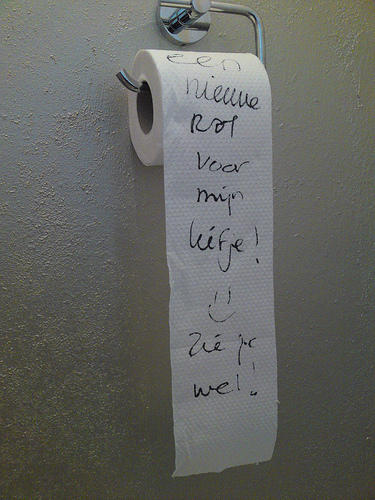 een
nieuwe
Rol
voor
mijn
liefje!
zie je
wel!